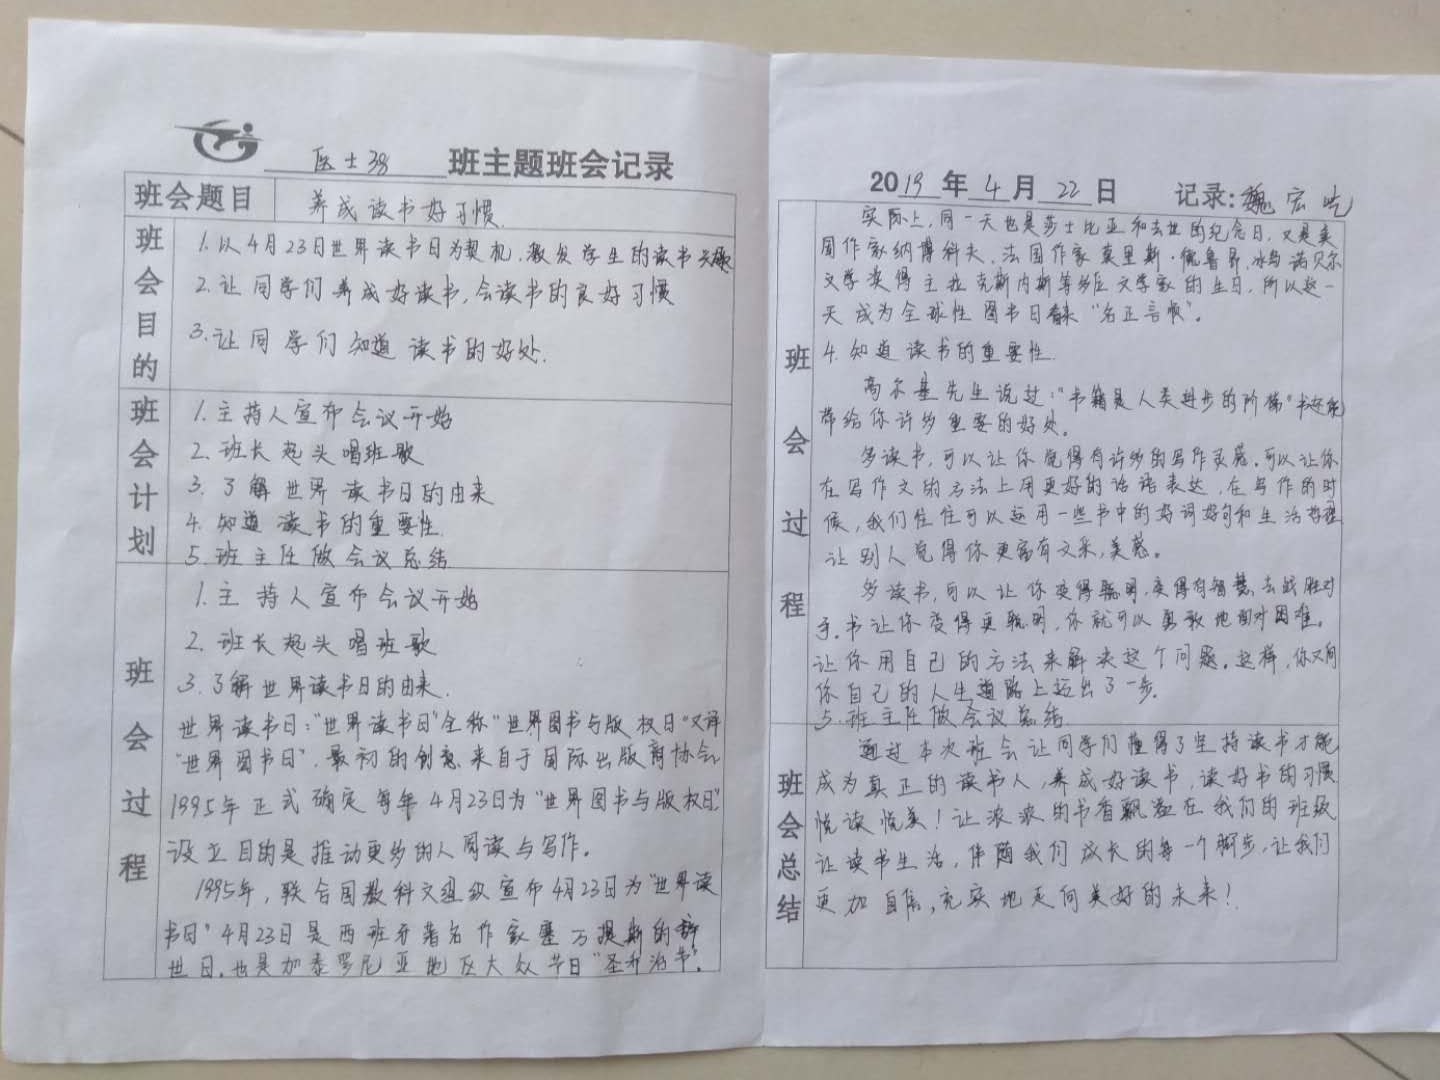 医士38 班主题班会记录
班会题目 养成读书好习惯.
班会目的
1. 以4月23日世界读书日为契机,激发学生的读书兴趣
2. 让同学们养成好读书,会读书的良好习惯
3. 让同学们知道读书的好处.
班会计划
1. 主持人宣布会议开始
2. 班长起头唱班歌
3. 了解世界读书日的由来
4. 知道读书的重要性.
5. 班主任做会议总结
班会过程
1. 主持人宣布会议开始
2. 班长起头唱班歌
3. 了解世界读书日的由来.
世界读书日:"世界读书日"全称"世界图书与版权日"又译
"世界图书日",最初的创意来自于国际出版商协会
1995年正式确定每年4月23日为"世界图书与版权日"
设立目的是推动更多的人阅读与写作。
1995年,联合国教科文组织宣布4月23日为"世界读
书日"4月23日是西班牙著名作家塞万提斯的辞
世日.也是加泰罗尼亚地区大众节日"圣乔治节".
2019年4月22日 记录:魏宏屹
班会过程
实际上,同一天也是莎士比亚和去世的纪念日,又是美
国作家纳博科夫、法国作家莫里斯·佩鲁昂,冰岛诺贝尔
文学奖得主拉克斯内斯等多位文学家的生日,所以这一
天成为全球性图书日看来"名正言顺"。
4. 知道读书的重要性.
高尔基先生说过:"书籍是人类进步的阶梯"书还能
带给你许多重要的好处。
多读书,可以让你觉得有许多的写作灵感.可以让你
在写作文的方法上用更好的话语表达,在写作的时
候,我们往往可以运用一些书中的好词好句和生活哲理
让别人觉得你更富有文采,美感。
多读书,可以让你变得聪明,变得有智慧去战胜对
手.书让你变得更聪明,你就可以勇敢地面对困难。
让你用自己的方法来解决这个问题。这样,你又向
你自己的人生道路上迈出了一步.
5. 班主任做会议总结.
班会总结
通过本次班会让同学们懂得了坚持读书才能
成为真正的读书人,养成好读书,读好书的习惯
悦读悦美!让浓浓的书香飘溢在我们的班级
让读书生活,伴随我们成长的每一个脚步,让我们
更加自信,充实地走向美好的未来!